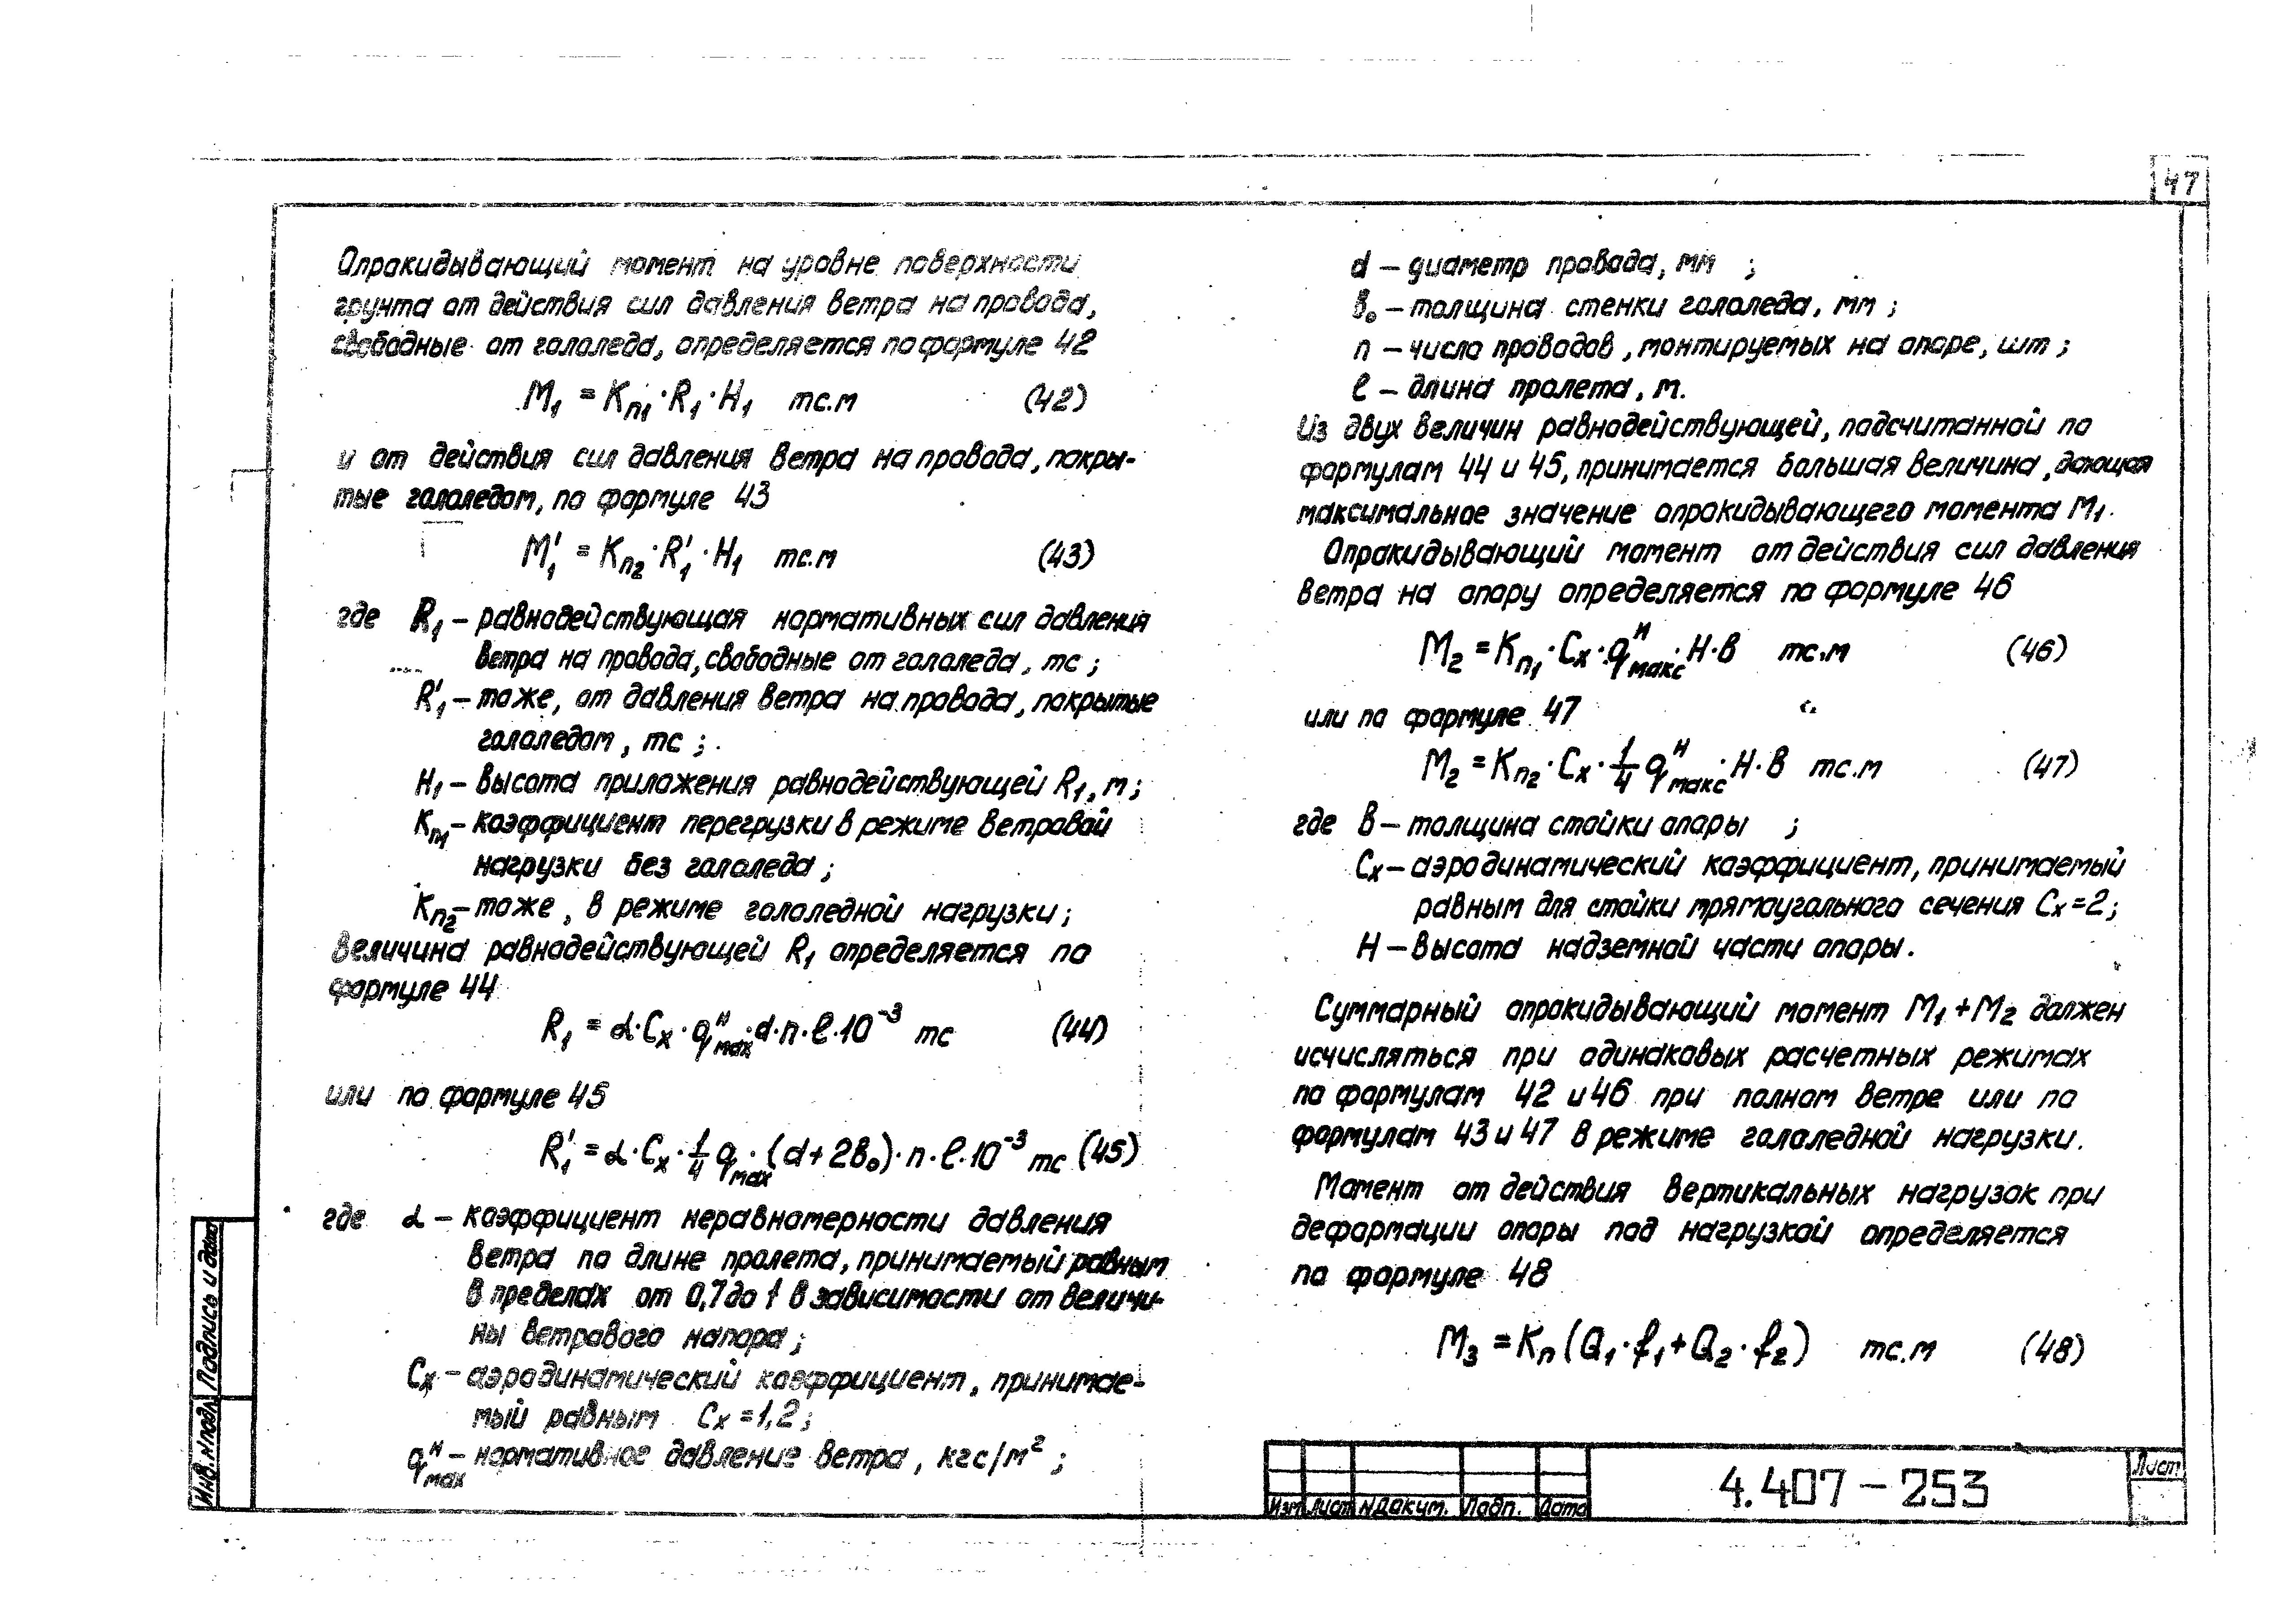 47
Опрокидывающий момент на уровне поверхности
грунта от действия сил давления ветра на провода,
свободные от гололеда, определяется по формуле 42
M₁ = Kп₁·R₁·H₁ тс.м (42)
и от действия сил давления ветра на провода, покры-
тые гололедом, по формуле 43
M₁' = Kп₂·R₁'·H₁ тс.м (43)
где R₁ – равнодействующая нормативных сил давления
ветра на провода, свободные от гололеда, тс;
R₁' – тоже, от давления ветра на провода, покрытые
гололедом, тс;
H₁ – высота приложения равнодействующей R₁, м;
Kп₁ – коэффициент перегрузки в режиме ветровой
нагрузки без гололеда;
Kп₂ – тоже, в режиме гололедной нагрузки;
Величина равнодействующей R₁ определяется по
формуле 44
R₁ = α·Cₓ·qᴴmax·d·n·ℓ·10⁻³ тс (44)
или по формуле 45
R₁' = α·Cₓ·1/4 qmax·(d+2в₀)·n·ℓ·10⁻³ тс (45)
где α – коэффициент неравномерности давления
ветра по длине пролета, принимаемый равным
в пределах от 0,7 до 1 в зависимости от величи-
ны ветрового напора;
Cₓ – аэродинамический коэффициент, принимае-
мый равным Cₓ=1,2;
qᴴmax – нормативное давление ветра, кгс/м²;
d – диаметр провода, мм ;
в₀ – толщина стенки гололеда, мм;
n – число проводов, монтируемых на опоре, шт;
ℓ – длина пролета, м.
Из двух величин равнодействующей, подсчитанной по
формулам 44 и 45, принимается большая величина, дающая
максимальное значение опрокидывающего момента M₁.
Опрокидывающий момент от действия сил давления
ветра на опору определяется по формуле 46
M₂ = Kп₁·Cₓ·qᴴмакс·H·в тс.м (46)
или по формуле 47
M₂ = Kп₂·Cₓ·1/4 qᴴмакс·H·в тс.м (47)
где в – толщина стойки опоры ;
Cₓ – аэродинамический коэффициент, принимаемый
равным для стойки прямоугольного сечения Cₓ=2;
H – высота надземной части опоры.
Суммарный опрокидывающий момент M₁+M₂ должен
исчисляться при одинаковых расчетных режимах
по формулам 42 и 46 при полном ветре или по
формулам 43 и 47 в режиме гололедной нагрузки.
Момент от действия вертикальных нагрузок при
деформации опоры под нагрузкой определяется
по формуле 48
M₃ = Kп(Q₁·f₁+Q₂·f₂) тс.м (48)
Инв.№подл. Подпись и дата
Изм Лист №Докум. Подп. Дата
4.407-253
Лист